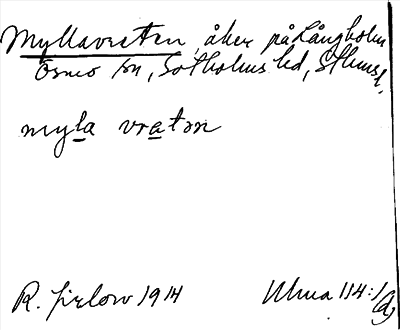 Myllavreten, åker på Långholm
Ösmo sn, Sotholms hd, Sthms l.
myla vratən
R. Jirlow 1914 Uhua 114:1